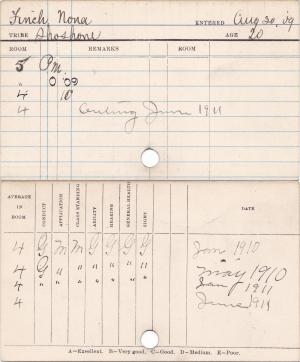 Finch, Nona ENTERED Aug 20, '09
TRIBE Shoshone AGE 20
ROOM REMARKS ROOM
5 Pm.
" O '09
4 '10
4 Outing June 1911
AVERAGE IN ROOM CONDUCT APPLICATION CLASS STANDING ABILITY HEARING GENERAL HEALTH SIGHT DATE
4 G M M G G G G Jan 1910
4 G " " " " " " May 1910
4 " " " " " " " Jan 1911
4 June 1911
A—Excellent. B—Very good. C—Good. D—Medium. E—Poor.